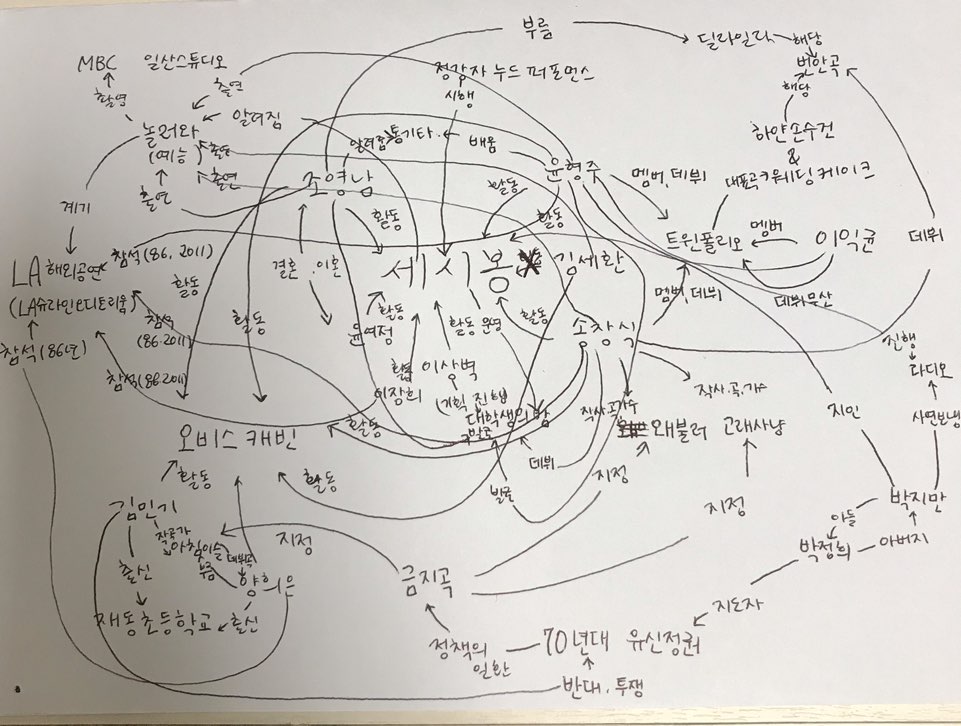 부름
딜라일라
해당
번안곡
MBC 일산스튜디오
정강자 누드 퍼포먼스
시행
촬영
출연
해당
놀러와
(예능)
알려짐
알려짐
통기타
배움
하얀손수건
&
대표곡
웨딩케이크
출연
출연
출연
조영남
윤형주
멤버, 데뷔
활동
활동
활동
계기
트윈폴리오
멤버
이익균
데뷔
LA 해외공연
참석(86, 2011)
결혼.이혼
쎄시봉
김세환
(LA슈라인오디토리움)
활동
멤버, 데뷔
데뷔무산
참석
(86.2011)
활동
윤여정
활동
활동
운영
활동
송창식
진행
참석(86년)
참석(86.2011)
활동
이상벽
이장희
(기획, 진행)
대학생의 밤
작사.곡.가수
라디오
오비스 캐빈
활동
발굴
작사.곡.가수
왜불러
고래사냥
지인
사연보냄
데뷔
활동
활동
발굴
지정
지정
박지만
김민기
아들
작곡가
아침이슬
데뷔곡
지정
박정희
아버지
출신
부름
양희은
금지곡
지도자
재동초등학교
출신
정책의
일환
70년대 유신정권
반대.투쟁